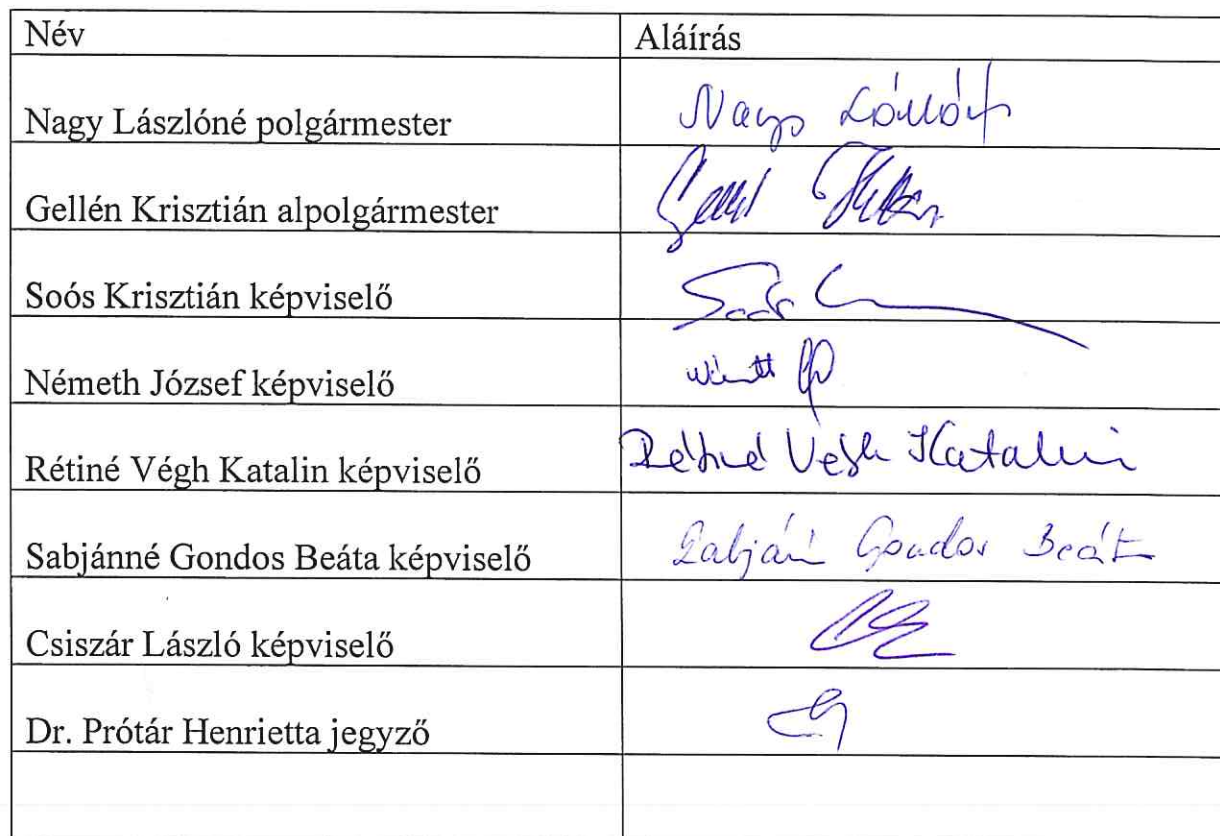 Név Aláírás
Nagy Lászlóné polgármester Nagy Lászlóné
Gellén Krisztián alpolgármester
Soós Krisztián képviselő Soós
Németh József képviselő
Rétiné Végh Katalin képviselő Rétiné Végh Katalin
Sabjánné Gondos Beáta képviselő Sabján Gondos Beáta
Csiszár László képviselő
Dr. Prótár Henrietta jegyző